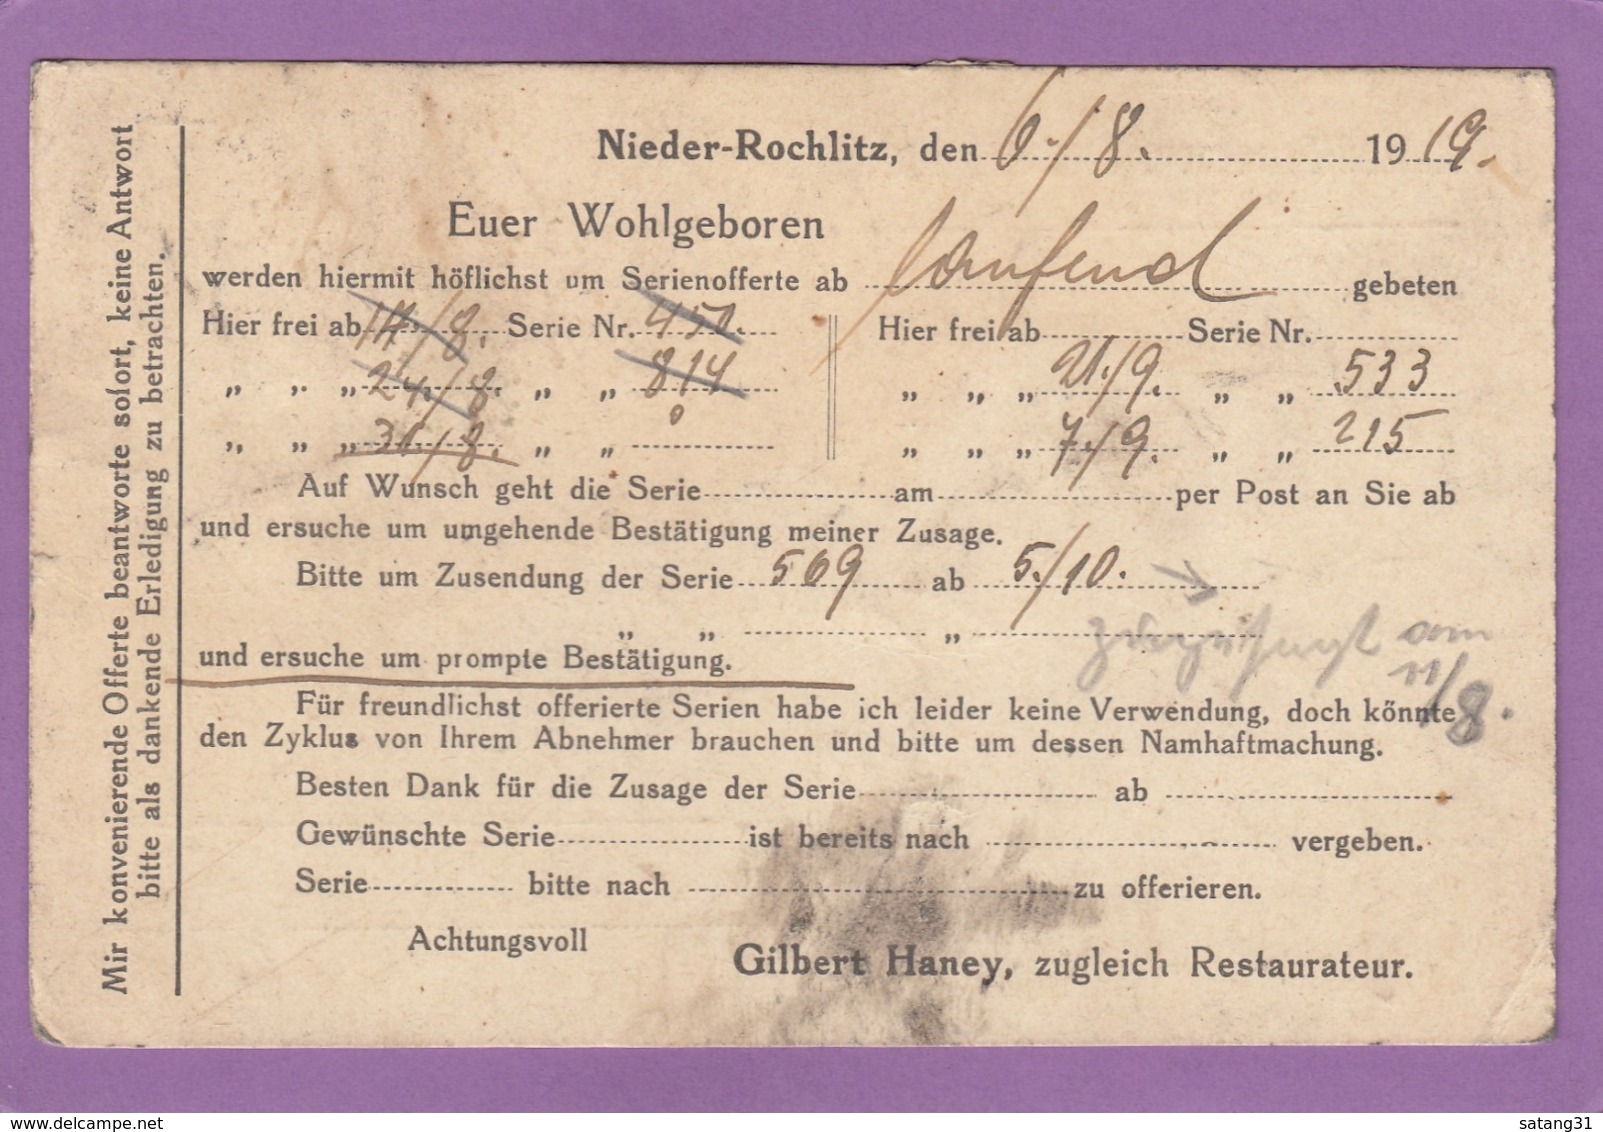 Nieder-Rochlitz, den 6./8. 1919.
Euer Wohlgeboren
werden hiermit höflichst um Serienofferte ab laufend gebeten
Hier frei ab 17./8. Serie Nr. 451. Hier frei ab Serie Nr.
„ „ „ 24./8. „ „ 814 „ „ „ 21./9. „ „ 533
„ „ „ 31./8. „ „ „ „ „ 7./9. „ „ 215
Auf Wunsch geht die Serie am per Post an Sie ab
und ersuche um umgehende Bestätigung meiner Zusage.
Bitte um Zusendung der Serie 569 ab 5./10.
„ „ „
zugesagt am
11/8.
und ersuche um prompte Bestätigung.
Für freundlichst offerierte Serien habe ich leider keine Verwendung, doch könnte
den Zyklus von Ihrem Abnehmer brauchen und bitte um dessen Namhaftmachung.
Besten Dank für die Zusage der Serie ab
Gewünschte Serie ist bereits nach vergeben.
Serie bitte nach zu offerieren.
Achtungsvoll
Gilbert Haney, zugleich Restaurateur.
Mir konvenierende Offerte beantworte sofort, keine Antwort
bitte als dankende Erledigung zu betrachten.
delcampe.net
satang31